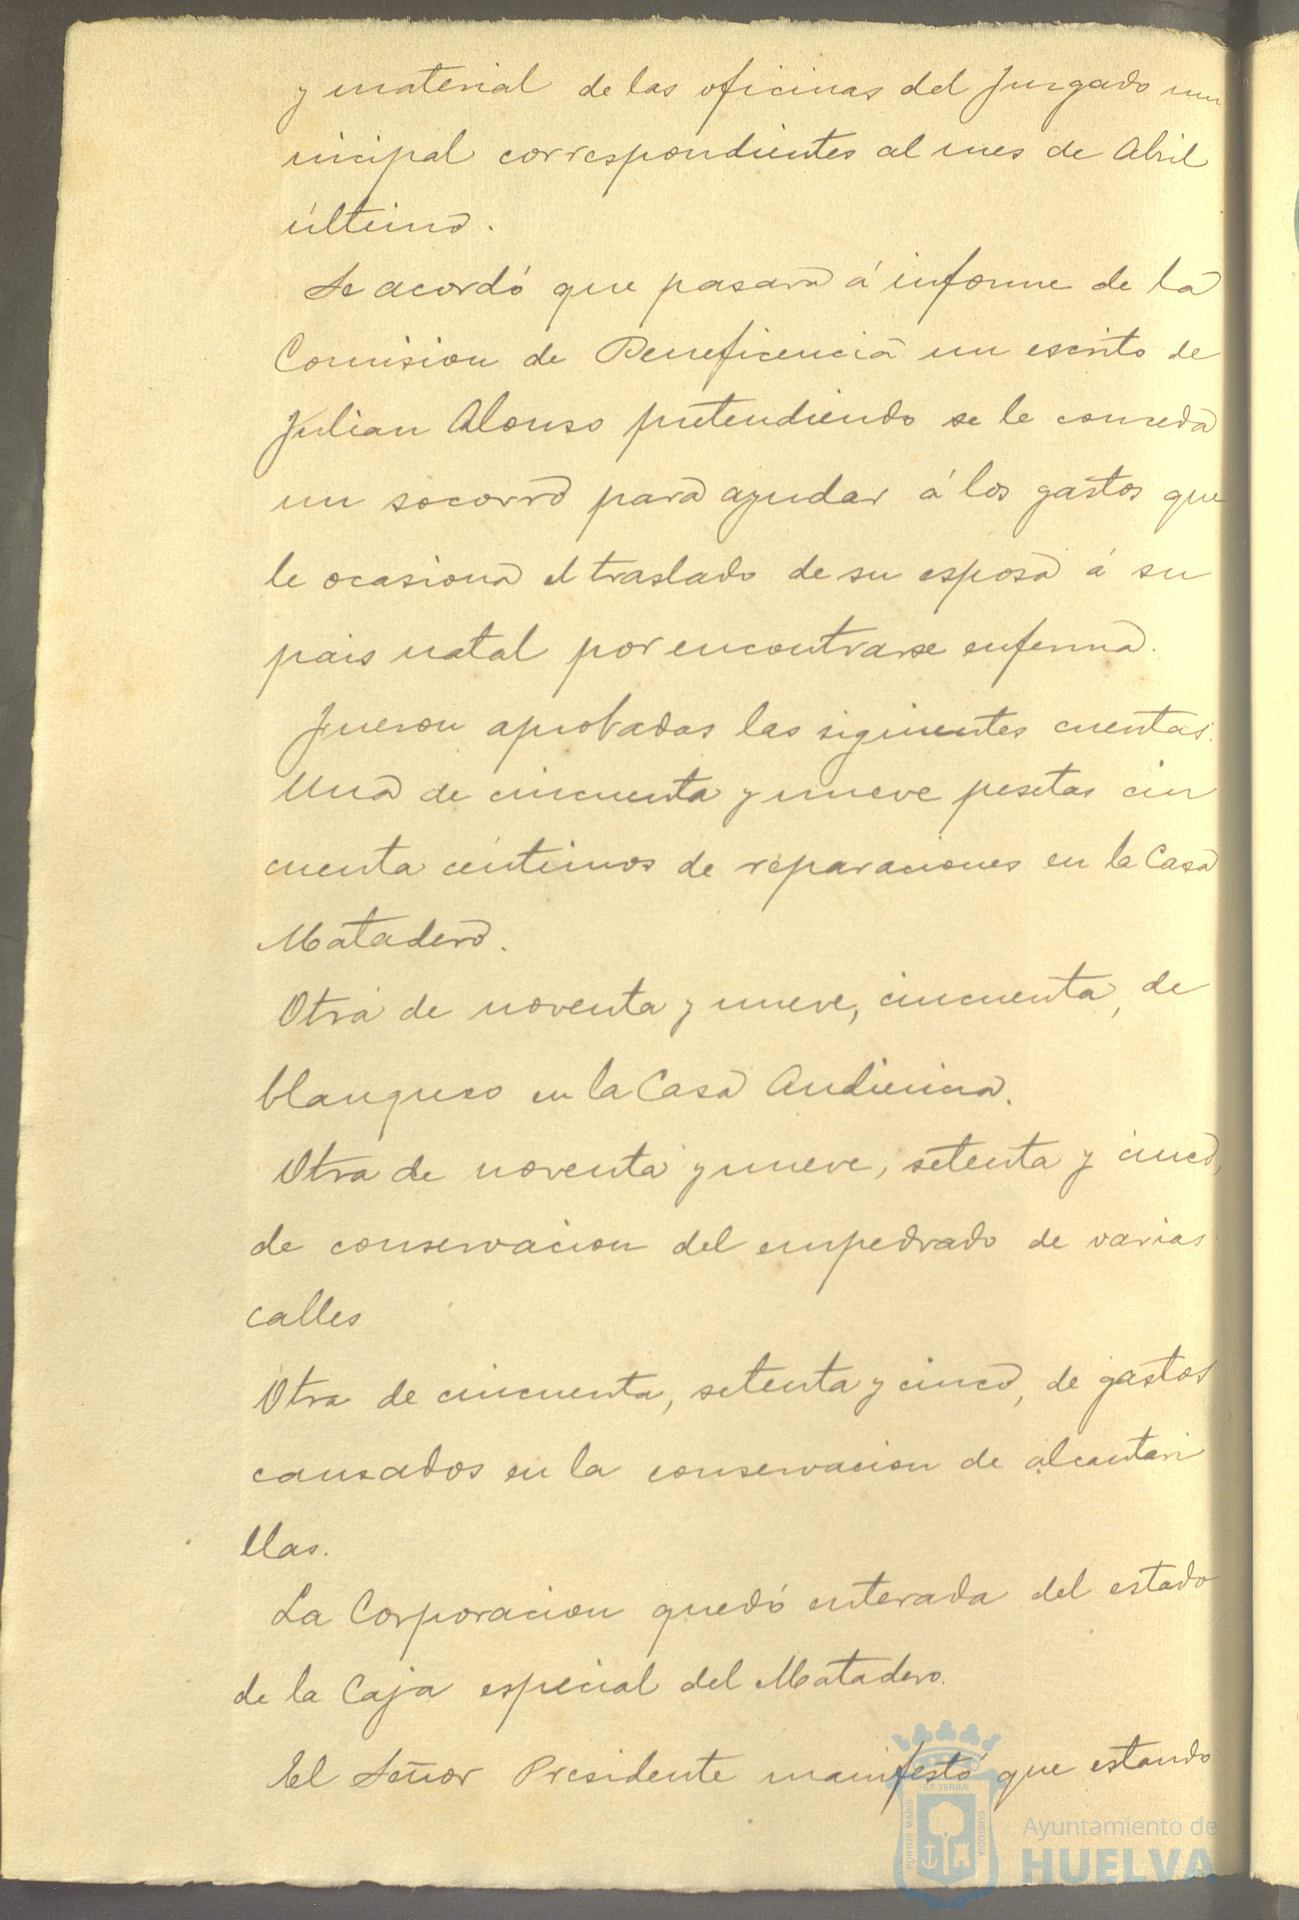 y material de las oficinas del Juzgado mu
nicipal correspondientes al mes de Abril
último.
Se acordó que pasara á informe de la
Comision de Beneficencia un escrito de
Julian Alonso pretendiendo se le conceda
un socorro para ayudar á los gastos que
le ocasiona el traslado de su esposa á su
pais natal por encontrarse enferma.
Fueron aprobadas las siguientes cuentas.
Una de cincuenta y nueve pesetas cin
cuenta céntimos de reparaciones en la Casa
Matadero.
Otra de noventa y nueve, cincuenta, de
blanqueo en la Casa Audiencia.
Otra de noventa y nueve, setenta y cinco,
de conservacion del empedrado de varias
calles
Otra de cincuenta, setenta y cinco, de gastos
causados en la conservacion de alcantari
llas.
La Corporacion quedó enterada del estado
de la Caja especial del Matadero.
El Señor Presidente manifestó que estando
ET TERRÆ
PORTUS MARIS
CUSTODIA
Ayuntamiento de
HUELVA